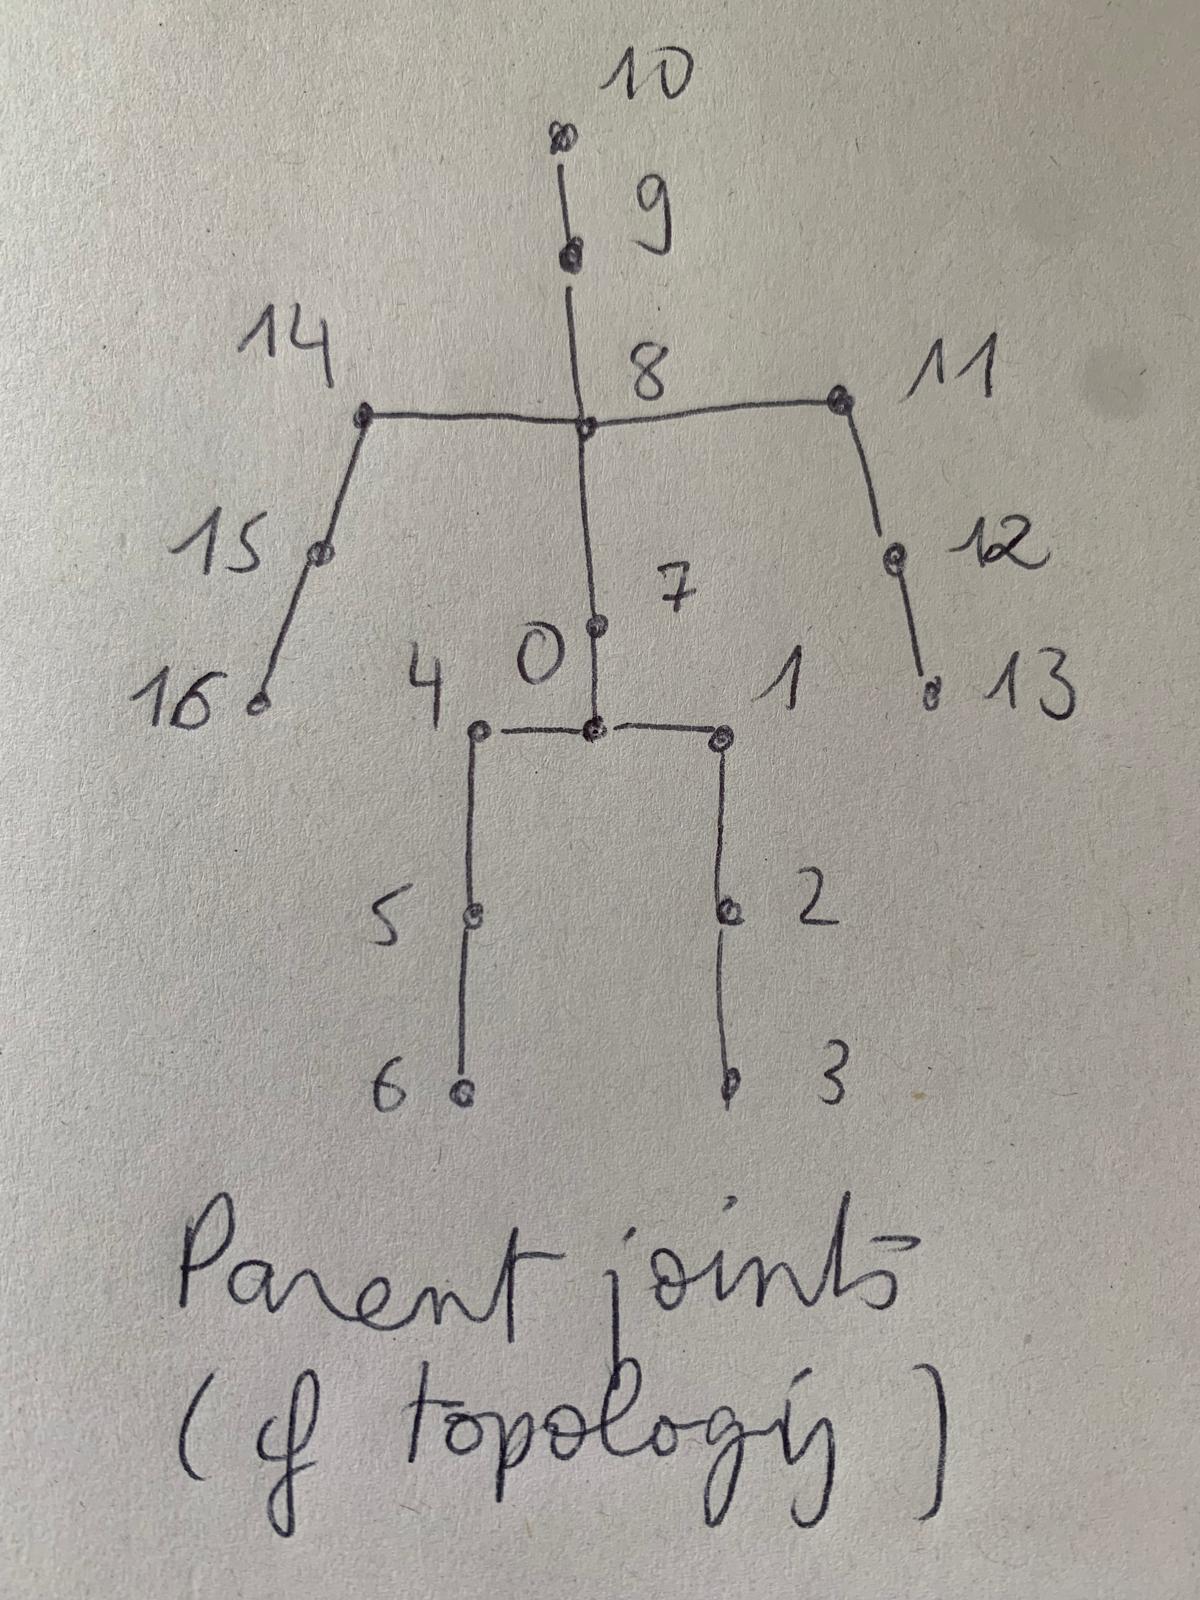 10
9
14 8 11
15 12
7
4 0 1
16 13
5 2
6 3
Parent joints
(of topology)